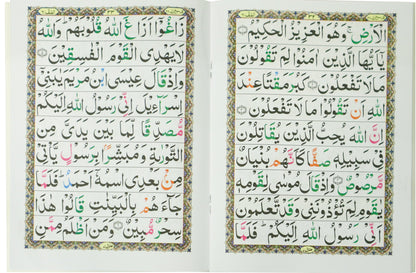 الْاَرْضِ ۚ وَهُوَ الْعَزِيْزُ الْحَكِيْمُ
يٰۤاَيُّهَا الَّذِيْنَ اٰمَنُوْا لِمَ تَقُوْلُوْنَ
مَا لَا تَفْعَلُوْنَ كَبُرَ مَقْتًا عِنْدَ
اللّٰهِ اَنْ تَقُوْلُوْا مَا لَا تَفْعَلُوْنَ
اِنَّ اللّٰهَ يُحِبُّ الَّذِيْنَ يُقَاتِلُوْنَ
فِيْ سَبِيْلِهٖ صَفًّا كَاَنَّهُمْ بُنْيَانٌ
مَّرْصُوْصٌ وَاِذْ قَالَ مُوْسٰى لِقَوْمِهٖ
يٰقَوْمِ لِمَ تُؤْذُوْنَنِيْ وَقَدْ تَّعْلَمُوْنَ
اَنِّيْ رَسُوْلُ اللّٰهِ اِلَيْكُمْ ؕ فَلَمَّا
زَاغُوْۤا اَزَاغَ اللّٰهُ قُلُوْبَهُمْ ؕ وَاللّٰهُ
لَا يَهْدِى الْقَوْمَ الْفٰسِقِيْنَ
وَاِذْ قَالَ عِيْسَى ابْنُ مَرْيَمَ يٰبَنِيْۤ
اِسْرَآءِيْلَ اِنِّيْ رَسُوْلُ اللّٰهِ اِلَيْكُمْ
مُّصَدِّقًا لِّمَا بَيْنَ يَدَيَّ مِنَ
التَّوْرٰىةِ وَمُبَشِّرًۢا بِرَسُوْلٍ يَّاْتِيْ
مِنْۢ بَعْدِى اسْمُهٗۤ اَحْمَدُ ؕ فَلَمَّا
جَآءَهُمْ بِالْبَيِّنٰتِ قَالُوْا هٰذَا
سِحْرٌ مُّبِيْنٌ وَمَنْ اَظْلَمُ مِمَّنِ